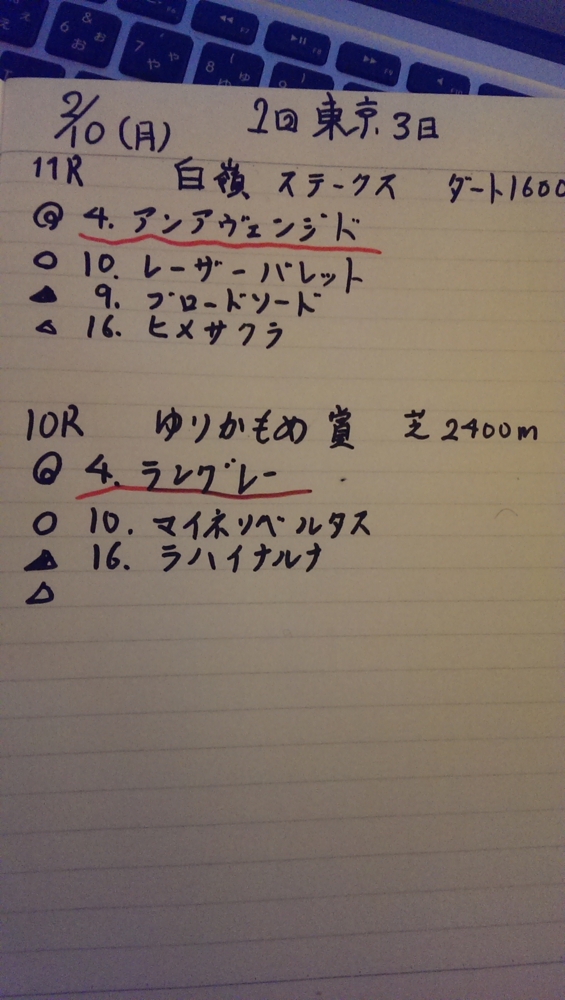 & 6 お ぉ
' 7 や ゃ
( 8 ゆ
2/10(月) 2回東京3日
11R 白嶺ステークス ダート1600
◎ 4. アンアヴェンジド
○ 10. レーザーバレット
▲ 9. ブロードソード
△ 16. ヒメサクラ
10R ゆりかもめ賞 芝2400m
◎ 4. ラングレー
○ 10. マイネリベルタス
▲ 16. ラハイナルナ
△